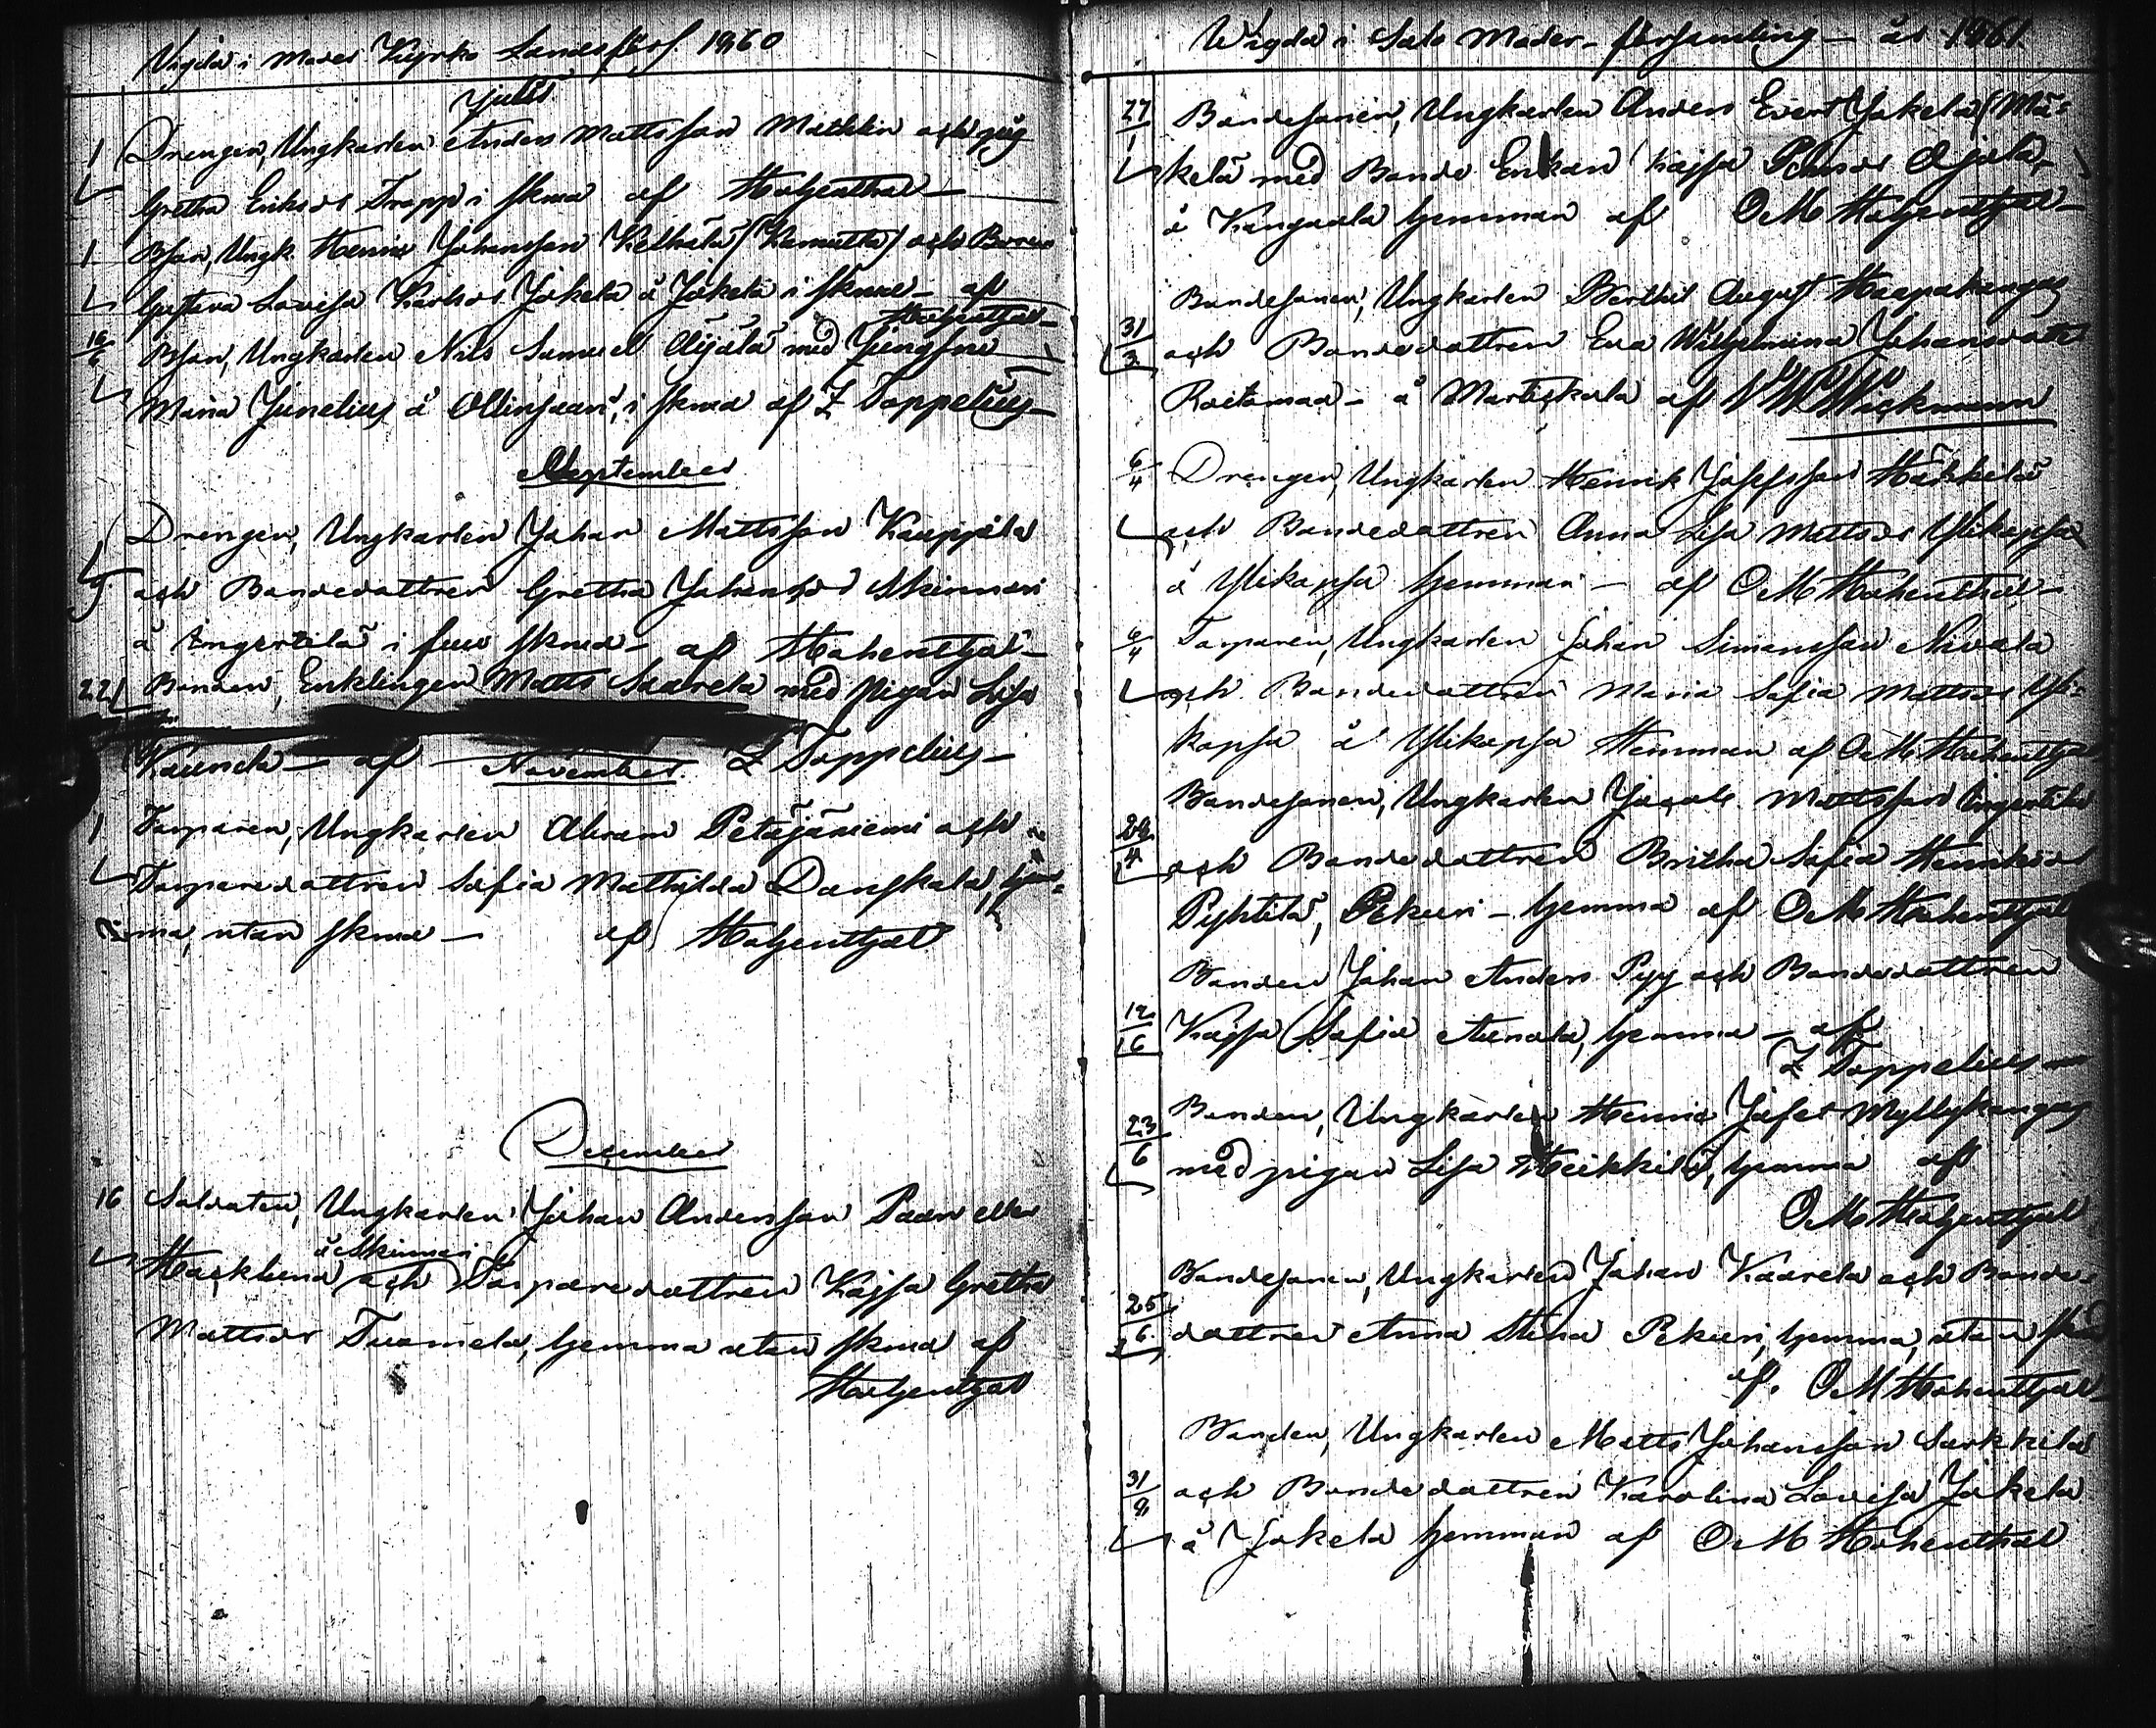 Vigda i Moder Kyrko Landsförs. 1860
Julii
1 Drengen, Ungkarlen Anders Mattsson Mathlin och pig
Gretha Eriksdr Trapp i skrud af Hohenthal
1 Bson, Ungk. Henric Johansson Keskitalo och
Gustava Lovisa Karlsdr Jokela å Jokela i skrud af
Hohenthal
16/6 Bson, Ungkarlen Nils Samuel Äijälä med Jungfru
Maria Junelius å Ollinsaari, i skrud af Z Toppelius
September
Drengen, Ungkarlen Johan Mattsson Kauppila
9 och Bondedottren Gretha Johansdr Skinnari
å Ängeslilä i full skrud af Hohenthal
22 Bonden, Enklingen Matts Saarela med pigan Lisa
Kaunela af Z Toppelius
November
1 Torparen, Ungkarlen Abram Petäjäniemi och
Torparedottren Sofia Mathilda Danskala, hem-
ma, utan skrud af Hohenthal
December
16 Soldaten, Ungkarlen Johan Andersson Paan eller
å Skinnari
Hacklund och Torparedottren Kajsa Gretha
Mattsdr Tuomela, hemma utan skrud af
Hohenthal
Wigda i Salo Moder-församling år 1861.
27/1 Bondesonen, Ungkarlen Anders Evert Jokela (Mä-
kelä med Bonde Enkan Kajsa Äijälä
å Kanguala hemman af OM Hohenthal
Bondesonen, Ungkarlen Berthil August Haapakangas
31/3 och Bondedottren Eva Wilhelmina Johansdotter
Rautamaa å Martiskala af Wichmann
6/4 Drengen, Ungkarlen Henrik Josefsson Härkelä
och Bondedottren Anna Lisa Mattsdr Ylikopsa
å Ylikopsa hemman af OM Hohenthal
6/4 Torparen, Ungkarlen Johan Simonsson Nivala
och Bondedottren Maria Sofia Mattsdr Yli-
kopsa å Ylikopsa Hemman af OM Hohenthal
Bondesonen, Ungkarlen Jacob Mattsson Ängeslilä
24/4 och Bondedottren Britha Sofia Henriksdr
Pyhtilä, Pekuri hemma af OM Hohenthal
Bonden Johan Anders Pyy och Bondedottren
12/6 Kajsa Sofia Aunola, hemma af
Z Toppelius
23/6 Bonden, Ungkarlen Henric Josef Myllykangas
med pigan Lisa Heikkilä, hemma af
OM Hohenthal
Bondesonen, Ungkarlen Johan Kaarela och Bonde-
25/6 dottren Anna Stina Pekuri, hemma, utan skrud
af OM Hohenthal
Bonden, Ungkarlen Matts Johansson Sarkkela
31/8 och Bondedottren Karolina Lovisa Jokela
å Jokela hemman af OM Hohenthal